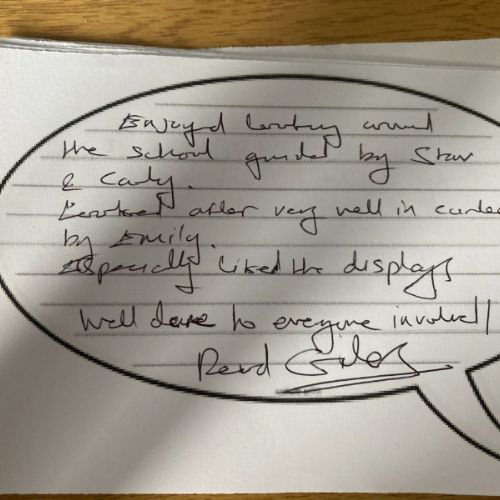 Enjoyed looking around
the school guided by Star
& Carly.
Looked after very well in
by Emily.
Especially liked the displays
Well done to everyone involved!
Revd Giles